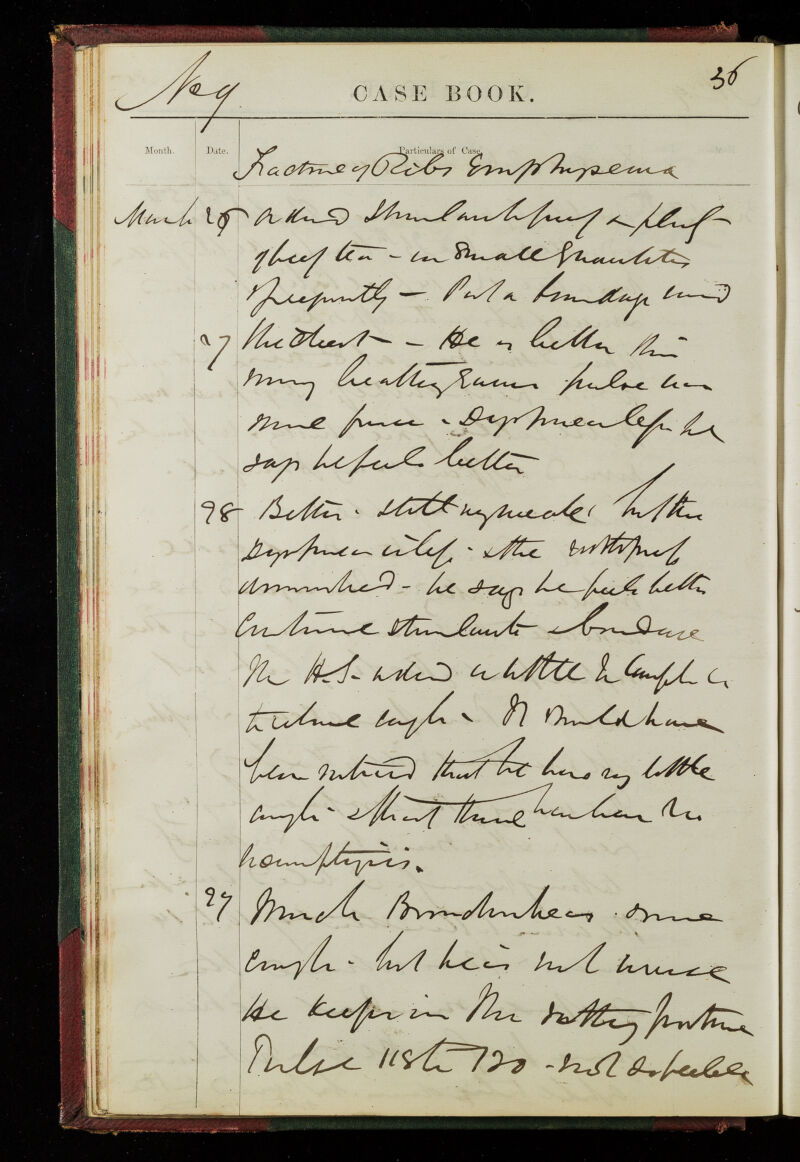 No 9
CASE BOOK.
36
Month. Date. Particulars of Case.
Fracture of Ribs Emphysema
March 26 ordered Stimulants freely &
of beef tea - in small quantities
frequently - Put a bandage round
27 the chest - He is better this
breathing easier pulse has
more power - Dyspnoea less he
says he feels better
28 Better - still very weak but the
Dyspnoea is less - & the
diminished - he says he feels better
Continue stimulants & bandage
The H.S. ordered a little
to relieve cough - It should have
been noticed that he has very little
cough - & that there has been no
haemoptysis.
29 Much Bronchorrhoea some
cough - but he is not worse
He keeps in the sitting posture
Pulse 118 to 120 - not so feeble